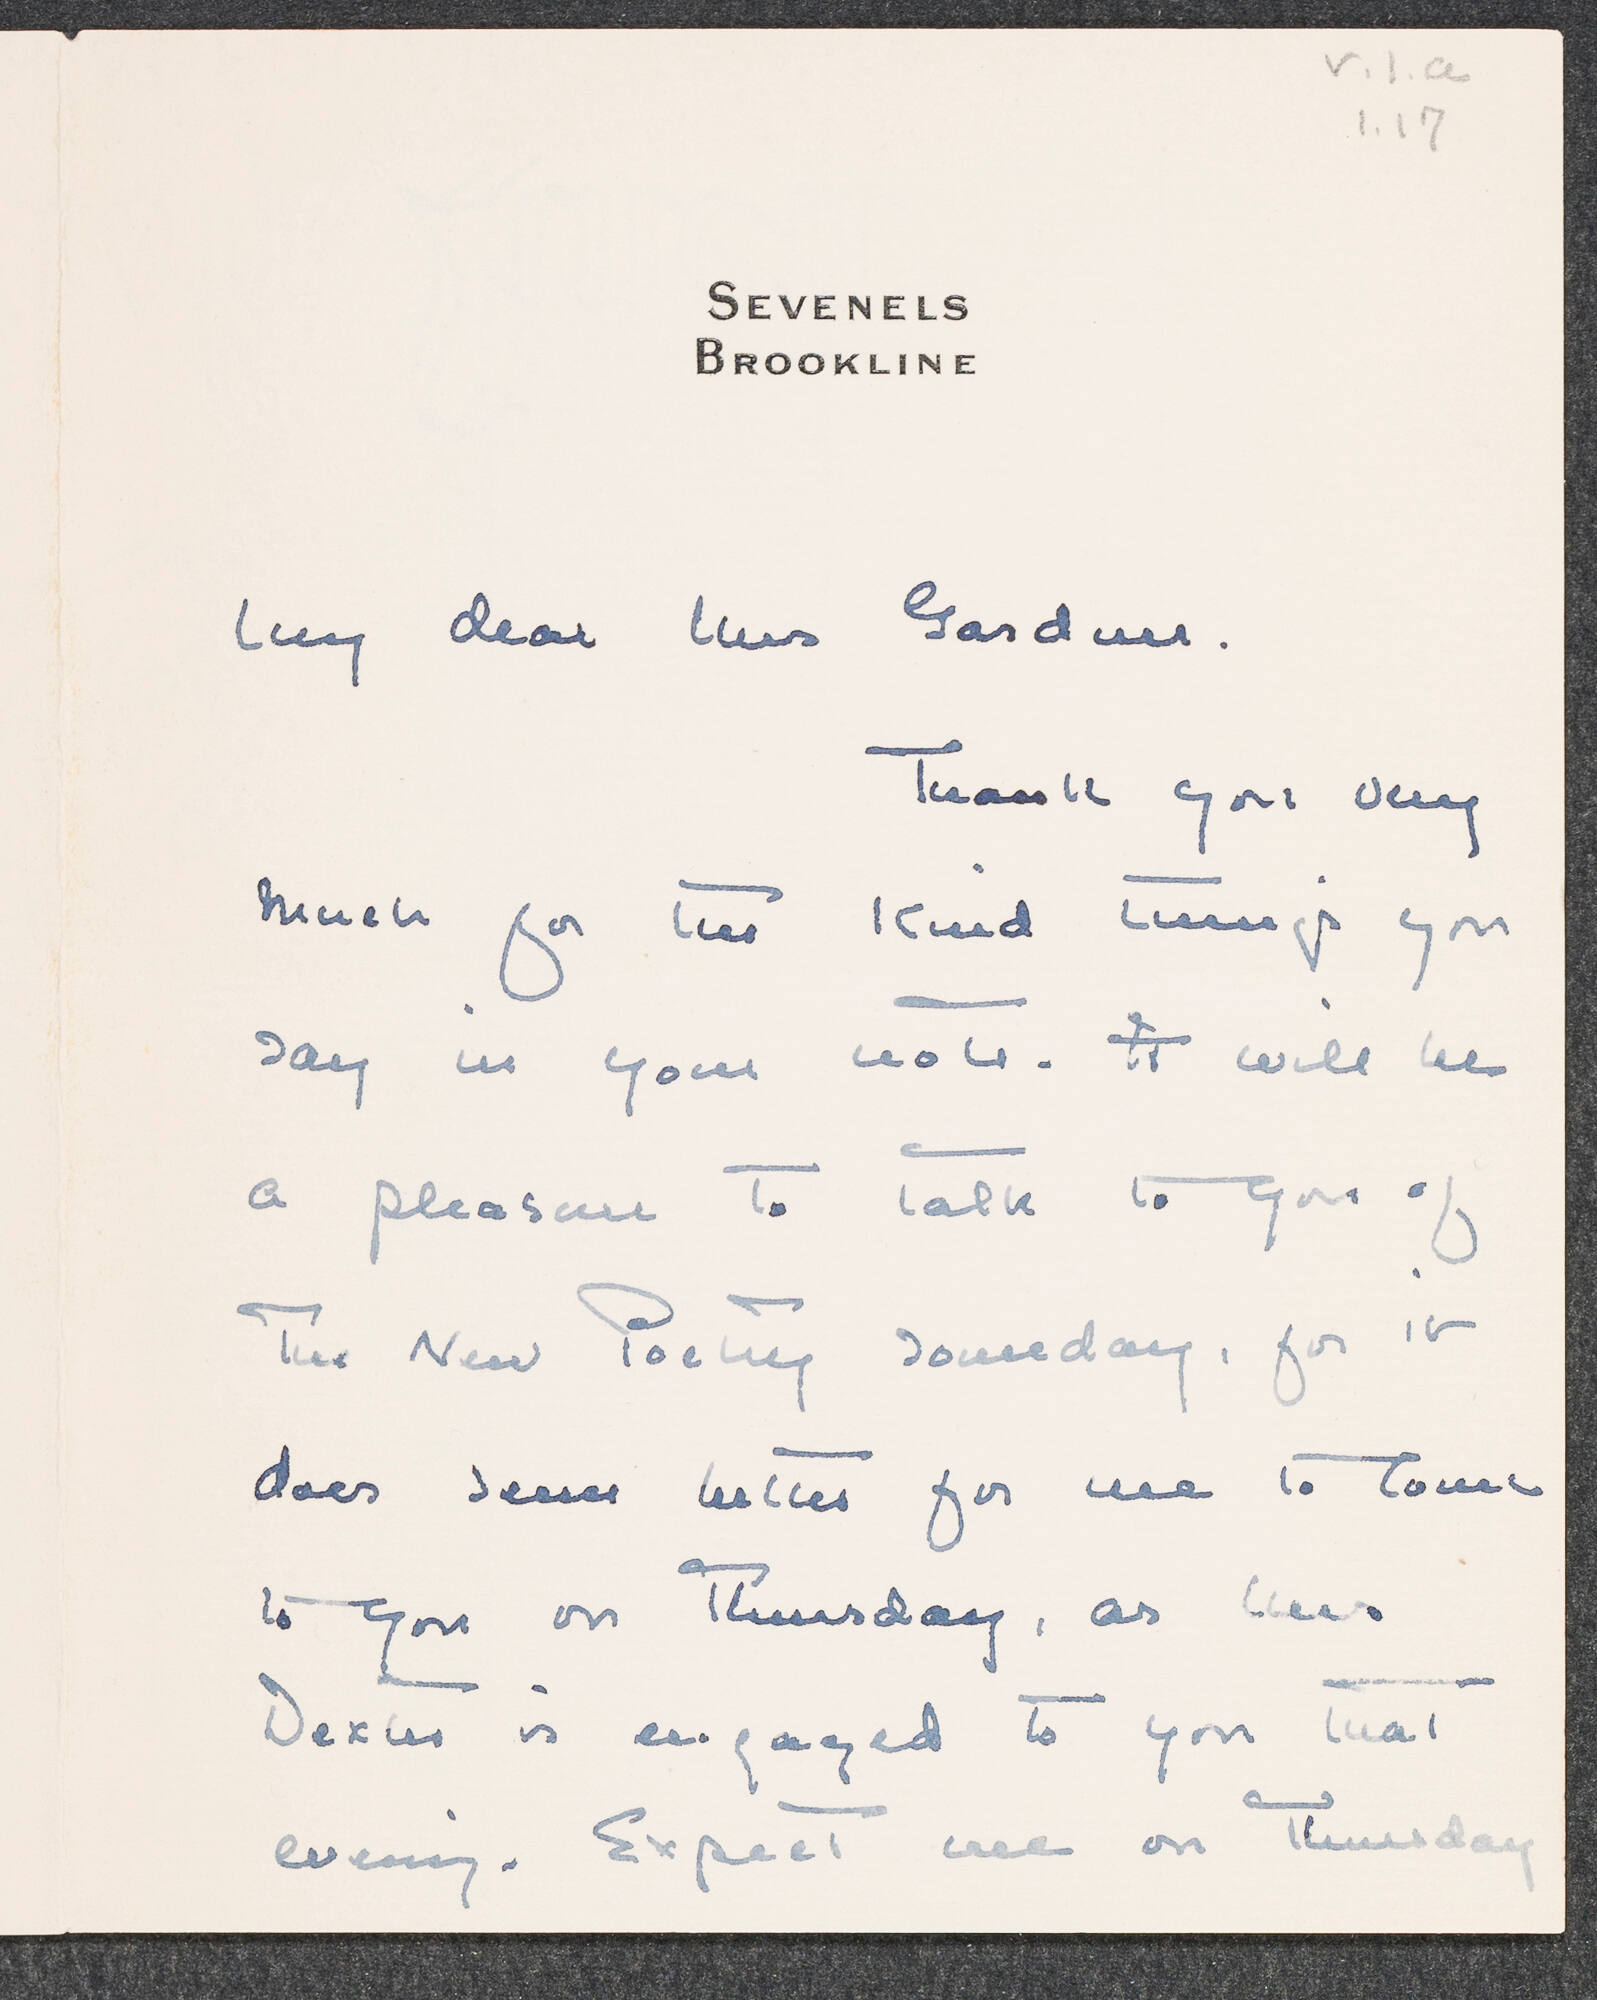 v.1.a
1.17
SEVENELS
BROOKLINE
My dear Mrs Gardner.
Thank you very
much for the kind things you
say in your note. It will be
a pleasure to talk to you of
The New Poetry someday, for it
does seem better for me to come
to you on Thursday, as Mrs
Dexter is engaged to you that
evening. Expect me on Thursday